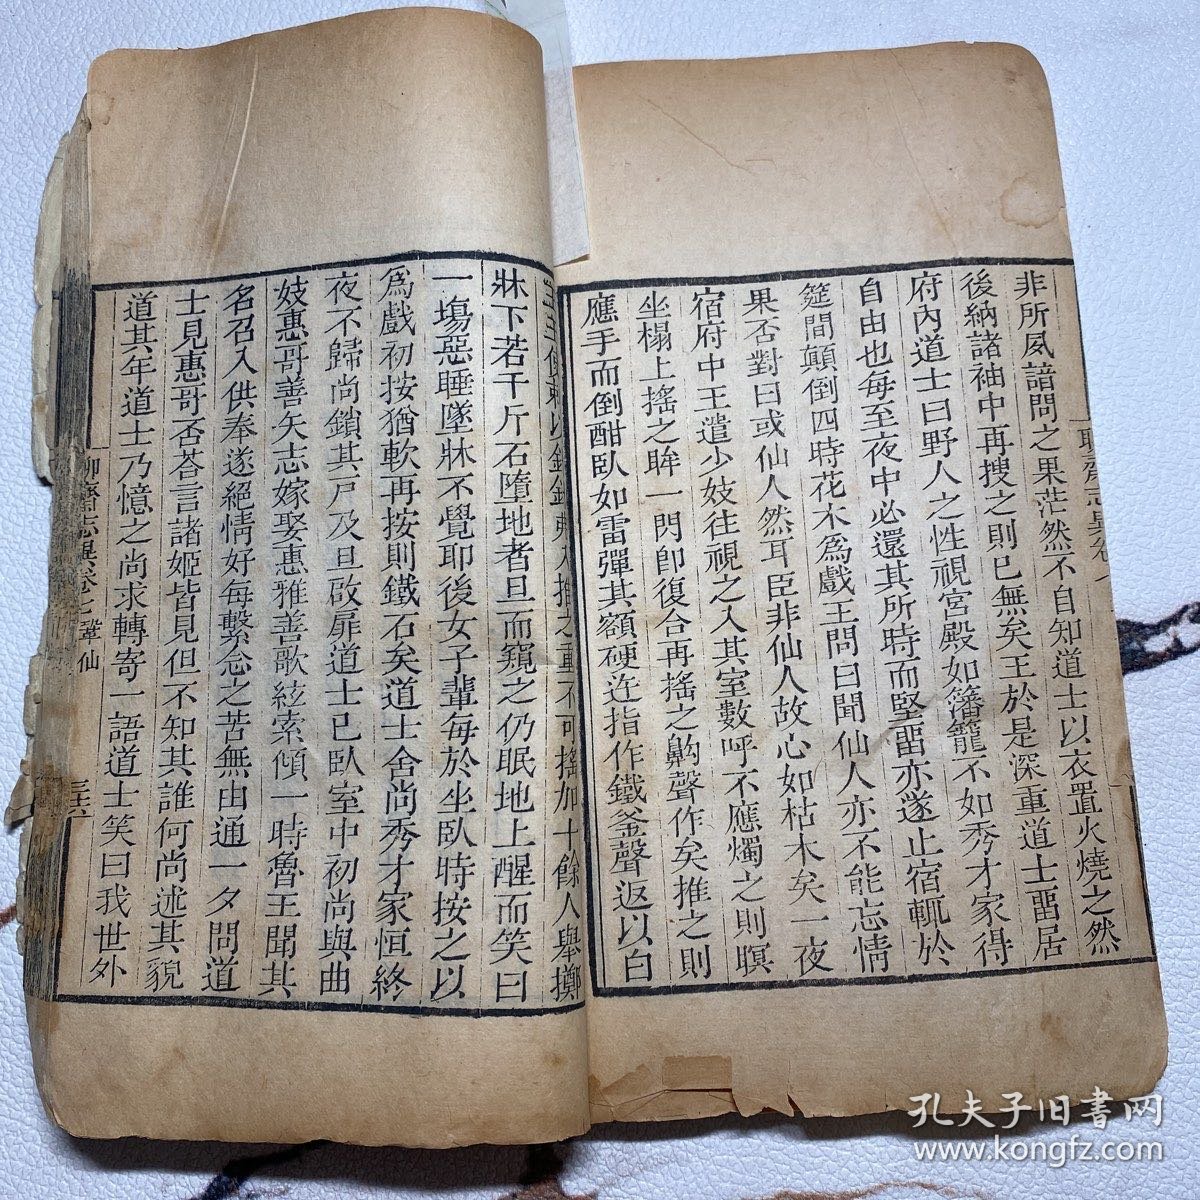 聊齋志異卷
非所夙諳問之果茫然不自知道士以衣置火燒之然
後納諸袖中再搜之則已無矣王於是深重道士畱居
府內道士曰野人之性視宮殿如籓籠不如秀才家得
自由也每至夜中必還其所時而堅畱亦遂止宿輒於
筵間顛倒四時花木爲戲王問曰聞仙人亦不能忘情
果否對曰或仙人然耳臣非仙人故心如枯木矣一夜
宿府中王遣少妓往視之入其室數呼不應燭之則瞑
坐榻上搖之眸一閃卽復合再搖之齁聲作矣推之則
應手而倒酣臥如雷彈其額硬迕指作鐵釜聲返以白
王王使刺以針針弗入推之重不可搖加十餘人舉擲
牀下若千斤石墮地者旦而窺之仍眠地上醒而笑曰
一塲惡睡墜牀不覺耶後女子輩每於坐臥時按之以
爲戲初按猶軟再按則鐵石矣道士舍尚秀才家恒終
夜不歸尚鎖其戸及旦啟扉道士已臥室中初尚與曲
妓惠哥善矢志嫁娶惠雅善歌絃索傾一時魯王聞其
名召入供奉遂絕情好每繫念之苦無由通一夕問道
士見惠哥否荅言諸姬皆見但不知其誰何尚述其貌
道其年道士乃憶之尚求轉寄一語道士笑曰我世外
聊齋志異卷七 鞏仙 三六
孔夫子旧书网
www.kongfz.com